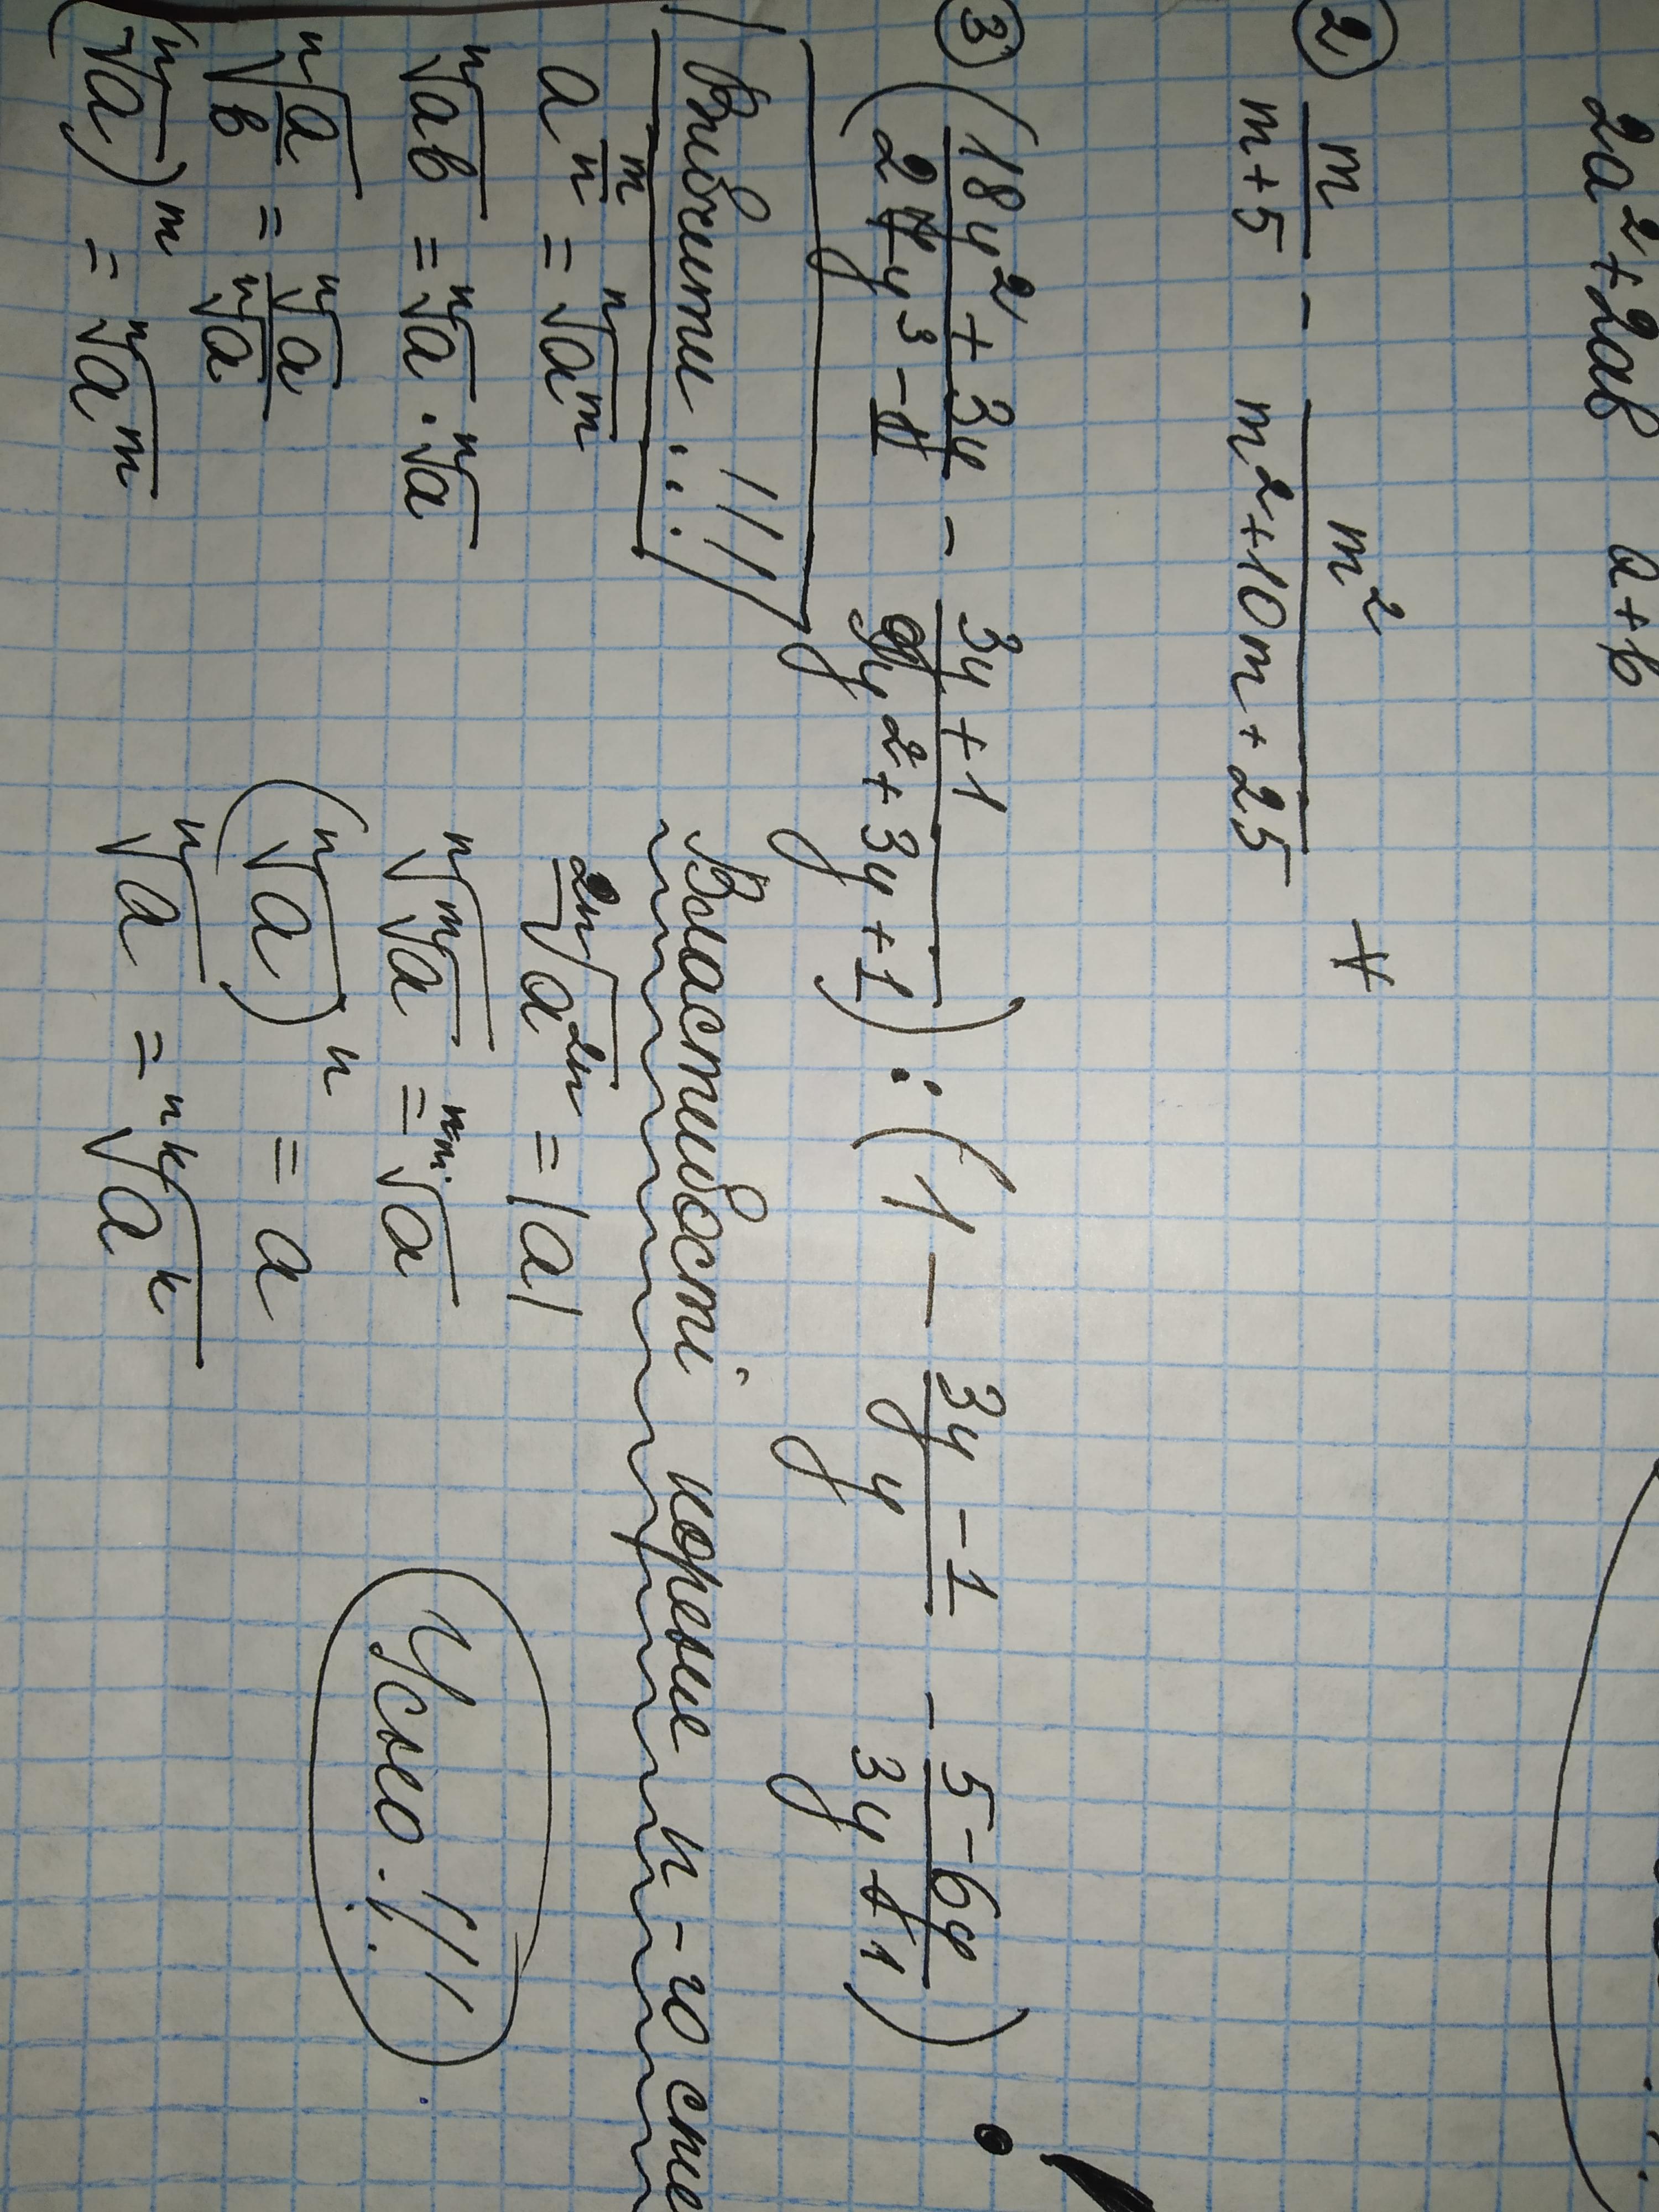 2a²+2ab a+b
② m/(m+5) - m²/(m²+10m+25)
③ ((18y²+3y)/(27y³-1) - (3y+1)/(9y²+3y+1)) : (1 - (3y-1)/y - (5-6y)/(3y-1))
Вивчити !!!
Властивості кореня n-го степе
a^(m/n) = ⁿ√(a^m)
²ⁿ√(a²ⁿ) = |a|
ⁿ√(ab) = ⁿ√a · ⁿ√a
ⁿ√(ᵐ√a) = ⁿᵐ√a
ⁿ√(a/b) = ⁿ√a / ⁿ√a
(ⁿ√a)ⁿ = a
(ⁿ√a)^m = ⁿ√(a^m)
ⁿ√a = ⁿᵏ√(aᵏ)
Усно!!!